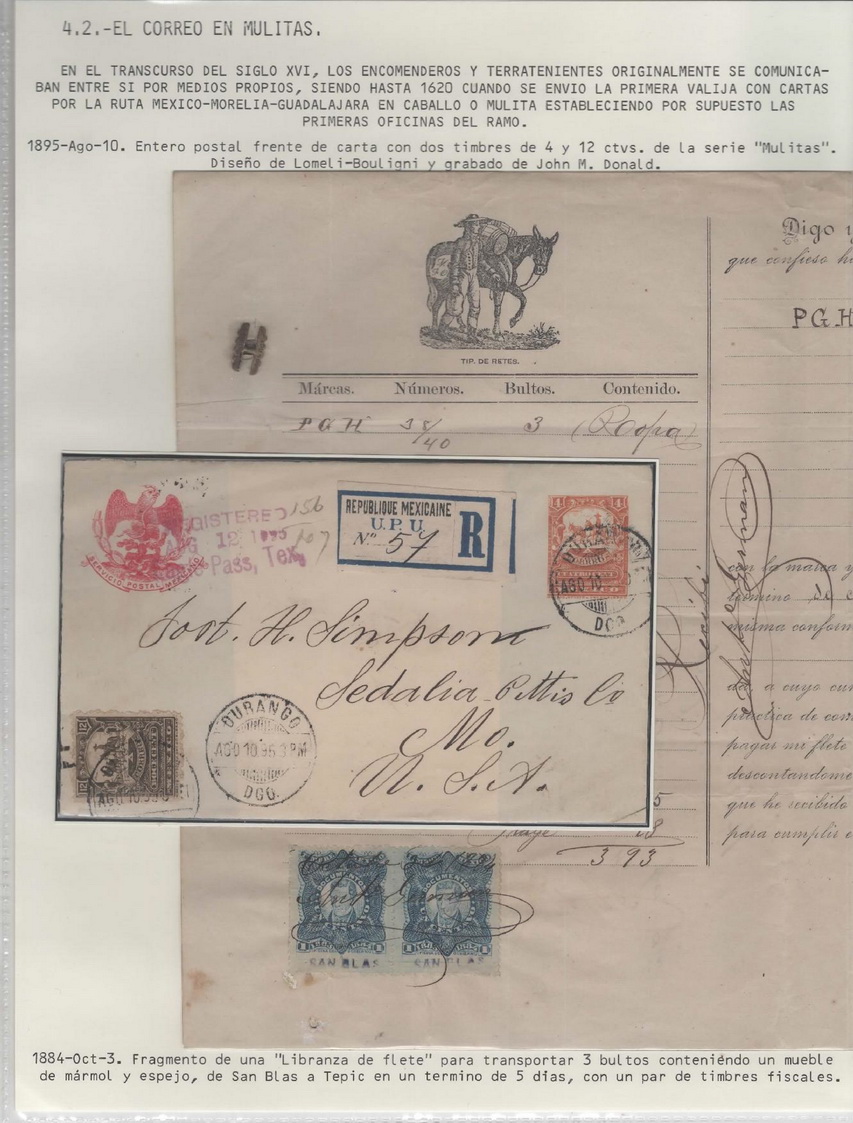 4.2.-EL CORREO EN MULITAS.
EN EL TRANSCURSO DEL SIGLO XVI, LOS ENCOMENDEROS Y TERRATENIENTES ORIGINALMENTE SE COMUNICA-
BAN ENTRE SI POR MEDIOS PROPIOS, SIENDO HASTA 1620 CUANDO SE ENVIO LA PRIMERA VALIJA CON CARTAS
POR LA RUTA MEXICO-MORELIA-GUADALAJARA EN CABALLO O MULITA ESTABLECIENDO POR SUPUESTO LAS
PRIMERAS OFICINAS DEL RAMO.
1895-Ago-10. Entero postal frente de carta con dos timbres de 4 y 12 ctvs. de la serie "Mulitas".
Diseño de Lomeli-Bouligni y grabado de John M. Donald.
TIP. DE RETES.
Márcas. Números. Bultos. Contenido.
PGH 38/40 3 (Ropa)
Digo y
que confieso h
PGH
con la marca y
termino de
misma conform
da, a cuyo cum
práctica de cor
pagar mi flete
descontandome
que he recibido
para cumplir
Recibí
SERVICIO POSTAL MEXICANO
REGISTERED
AUG 12 1895
Pass, Tex.
156
107
REPUBLIQUE MEXICAINE
U.P.U.
No 57
R
4
4
DURANGO
AGO 10
DGO.
Jost. H. Simpson
Sedalia Pettis Co
Mo.
U. S. A.
12
12
DURANGO
AGO 10 95 3 PM
DGO.
AGO 10 95
5
18
3 93
DOCUMENTOS
DOCUMENTOS
SAN BLAS
SAN BLAS
1884-Oct-3. Fragmento de una "Libranza de flete" para transportar 3 bultos conteniéndo un mueble
de mármol y espejo, de San Blas a Tepic en un termino de 5 días, con un par de timbres fiscales.